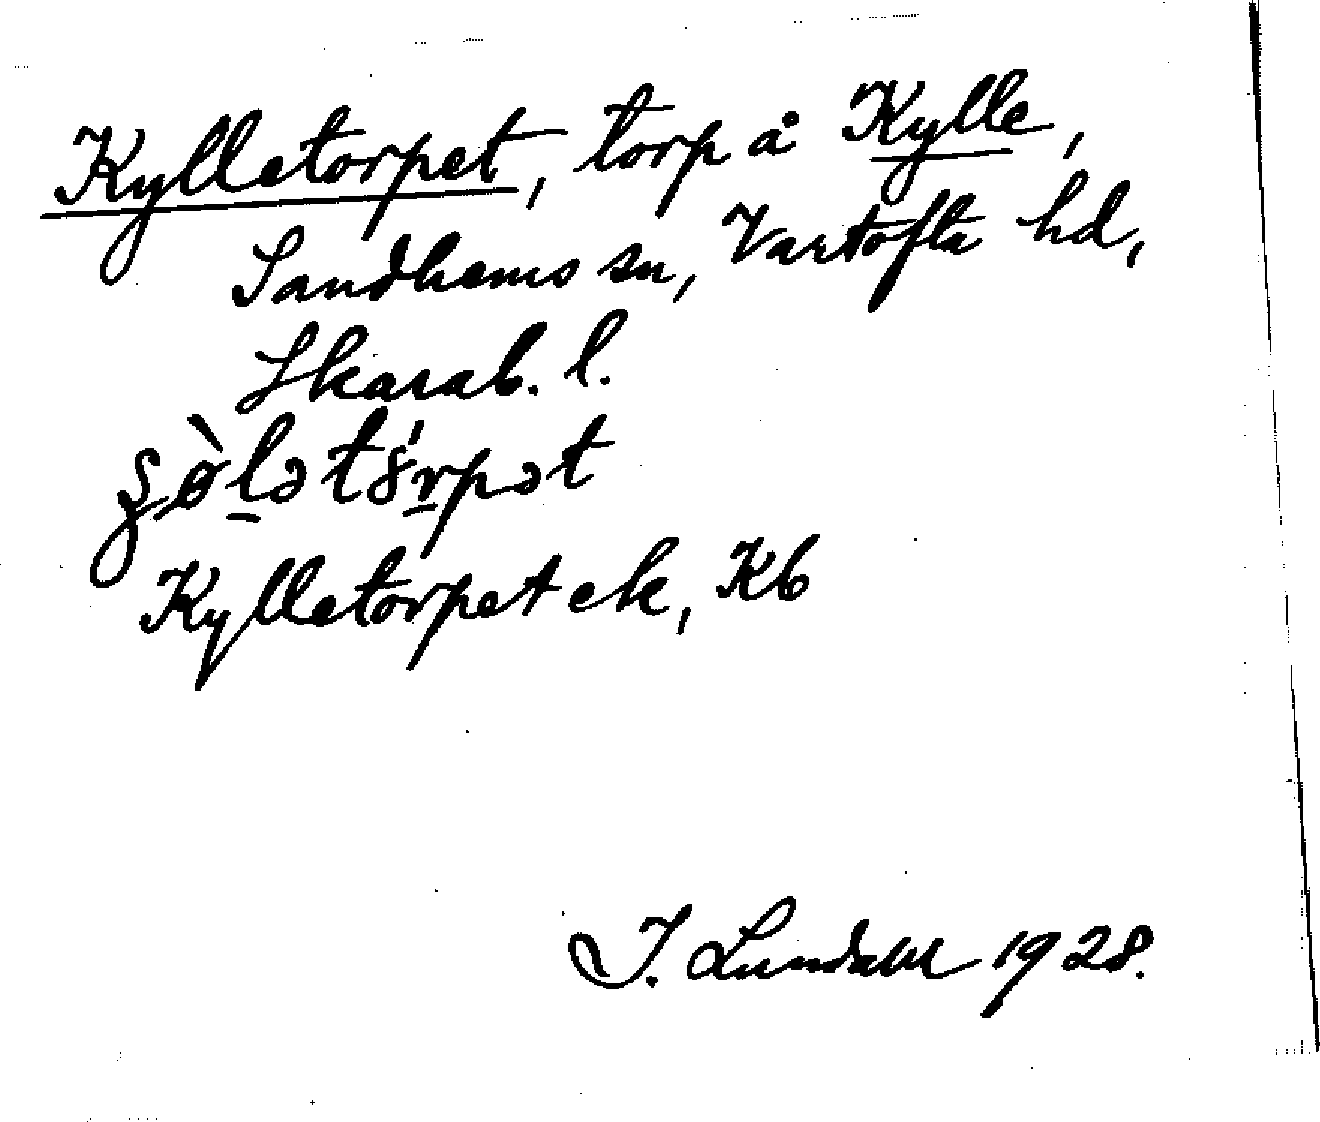 Kylletorpet, torp å Kylle,
Sandhems sn, Vartofta hd,
Skarab. l.
Kylletorpet ek, Kb
I. Lundahl 1928.